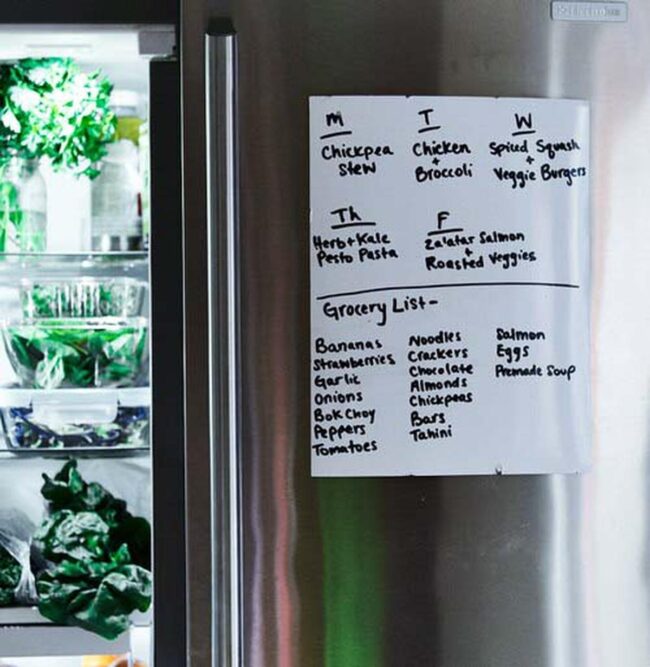 M T W
Chickpea Chicken Spiced Squash
Stew + +
Broccoli Veggie Burgers
Th F
Herb + Kale Za'atar Salmon
Pesto Pasta +
Roasted Veggies
Grocery List -
Bananas
Strawberries
Garlic
Onions
Bok Choy
Peppers
Tomatoes
Noodles
Crackers
Chocolate
Almonds
Chickpeas
Bars
Tahini
Salmon
Eggs
Premade Soup